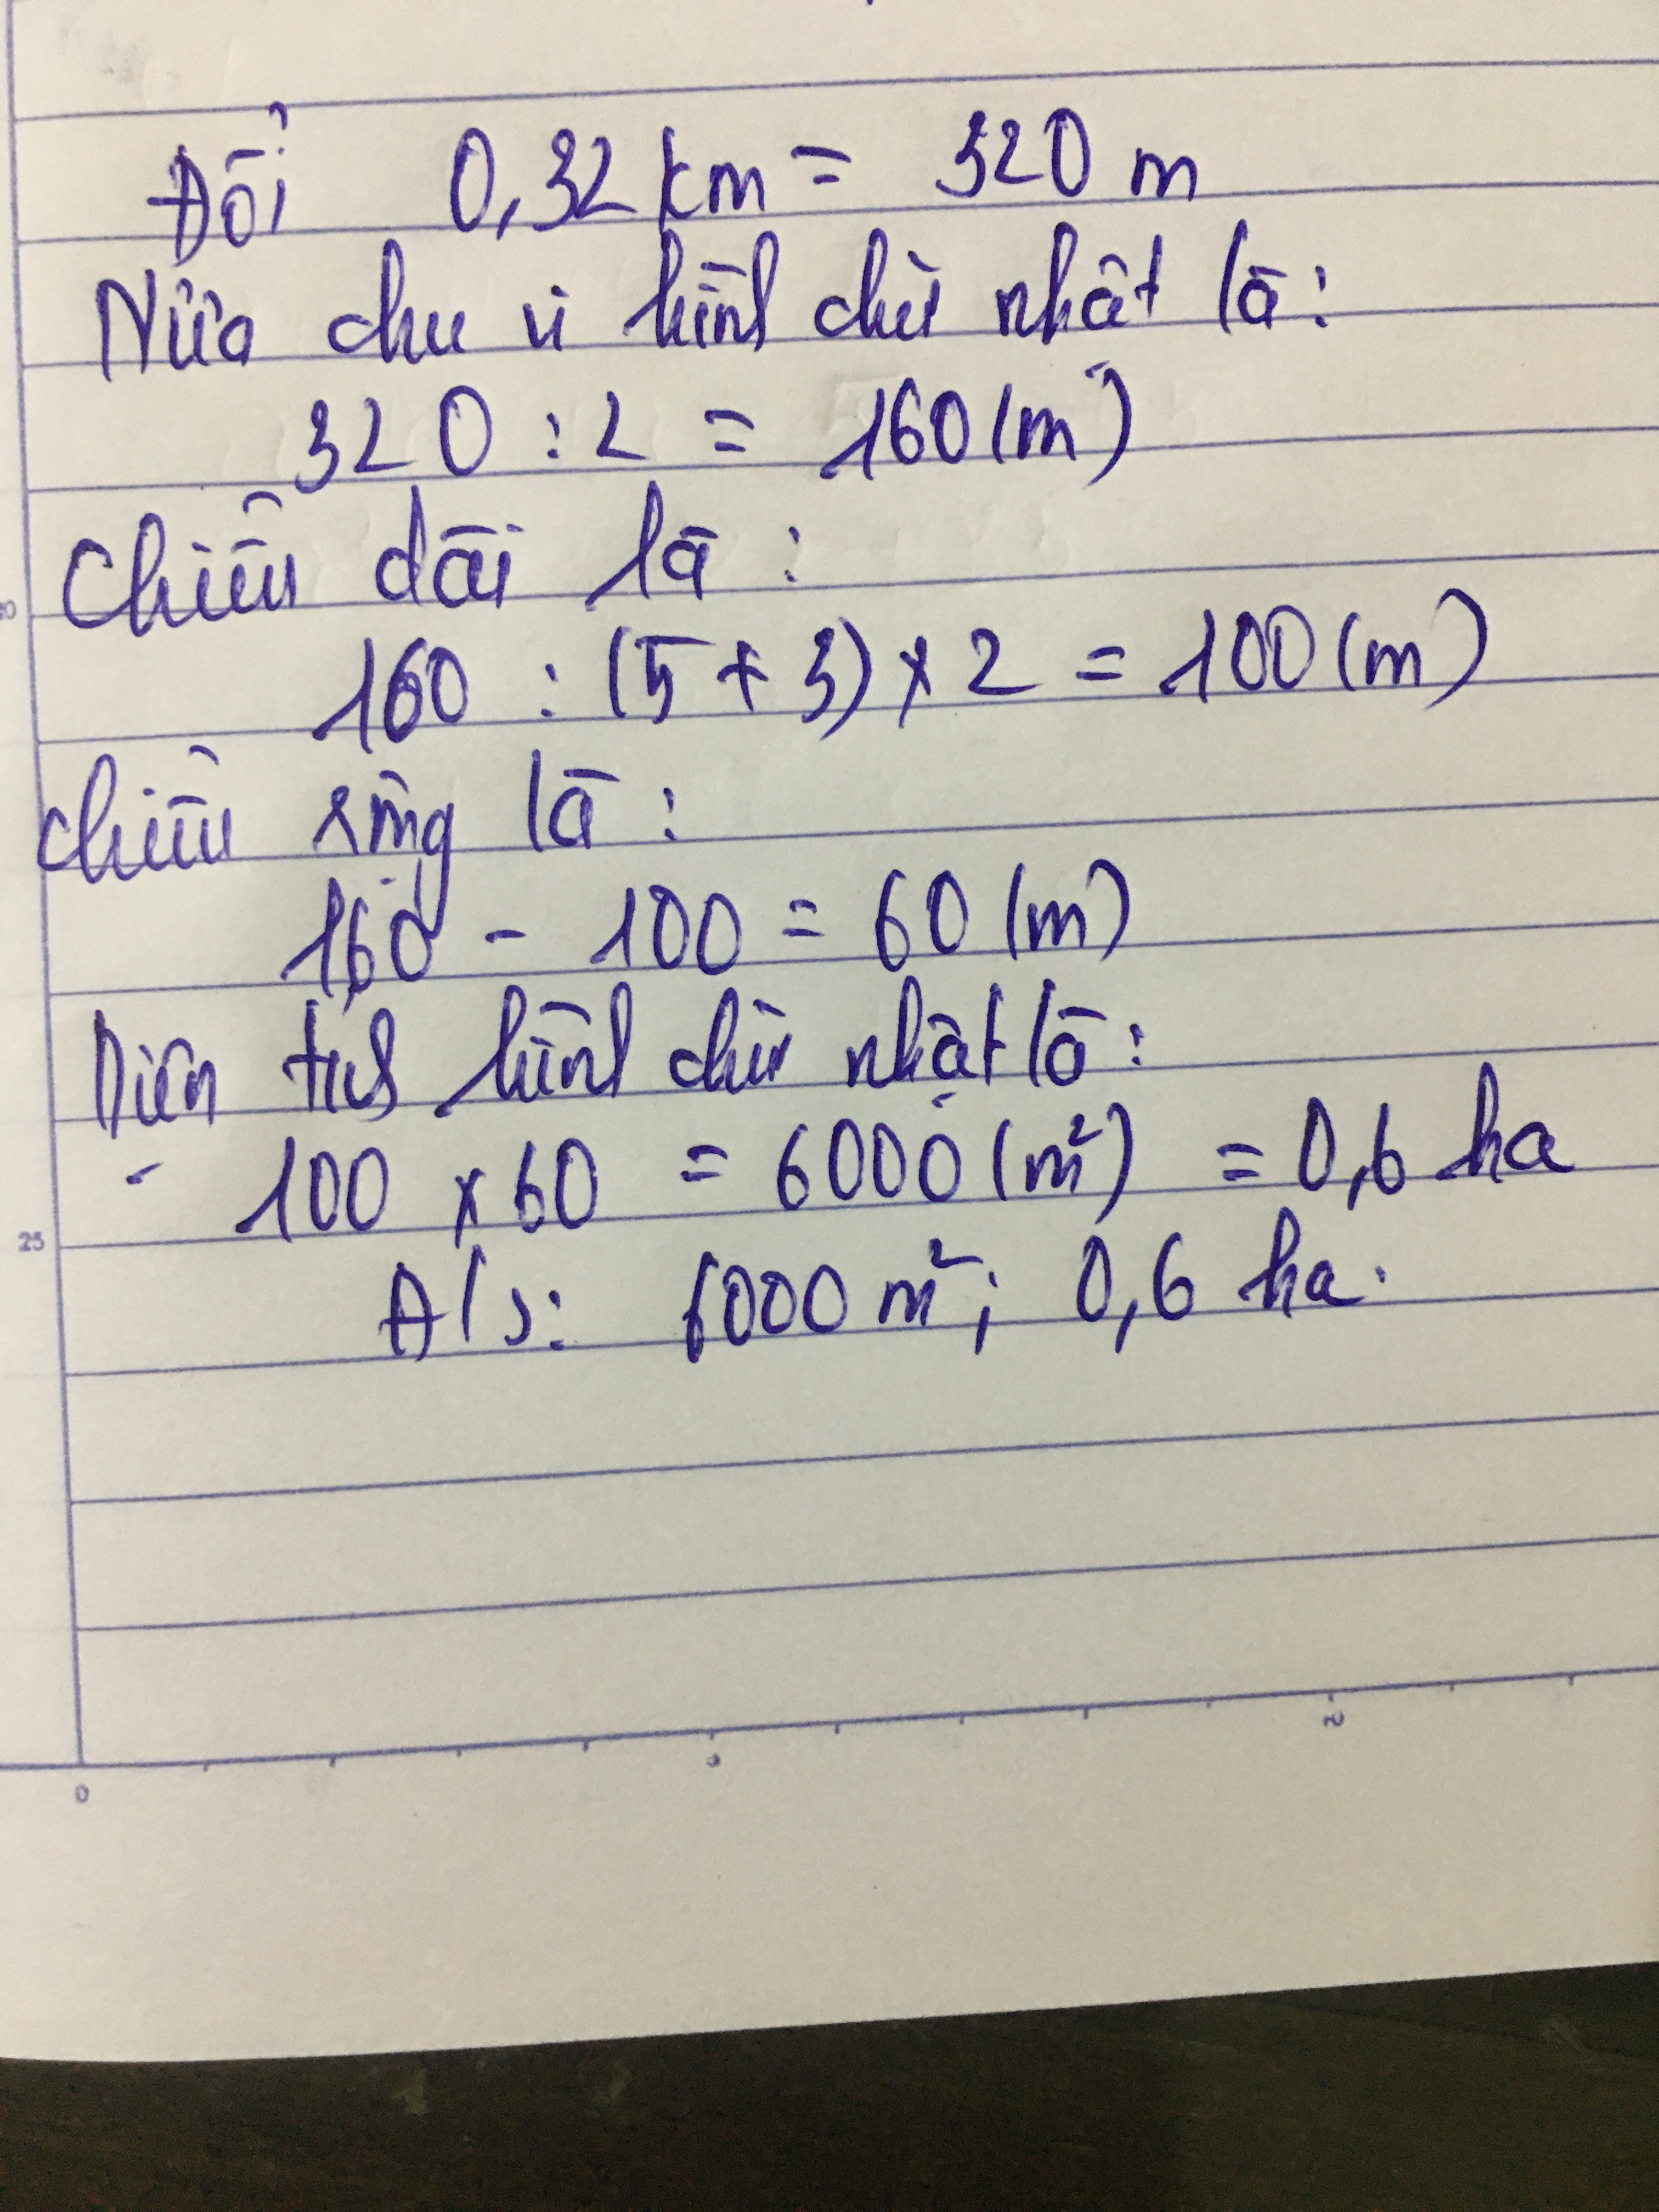 Đổi 0,32 km = 320 m
Nửa chu vi hình chữ nhật là:
320 : 2 = 160 (m)
Chiều dài là :
160 : (5 + 3) x 2 = 100 (m)
Chiều rộng là :
160 - 100 = 60 (m)
Diện tích hình chữ nhật là :
100 x 60 = 6000 (m²) = 0,6 ha
Đ/s: 6000 m²; 0,6 ha.
25
0